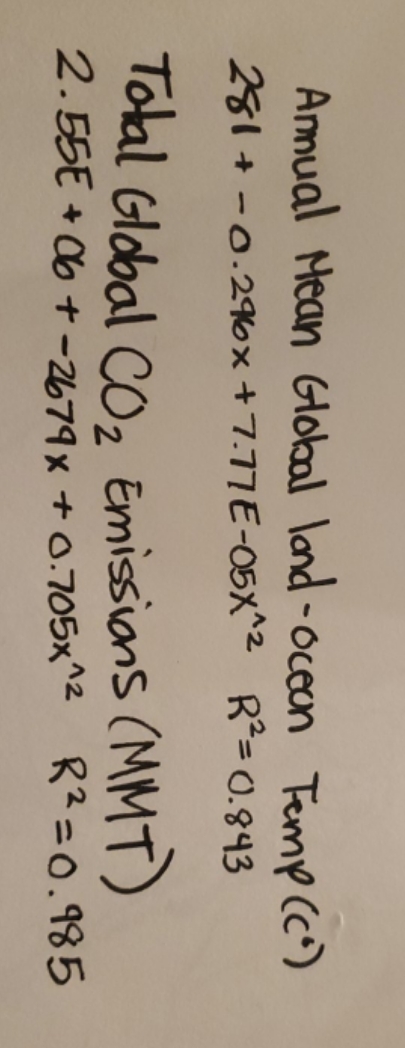 Annual Mean Global land-ocean Temp (C°)
281 + -0.296x + 7.77E-05x^2 R²=0.843
Total Global CO₂ Emissions (MMT)
2.55E+06 + -2679x + 0.705x^2 R²=0.985